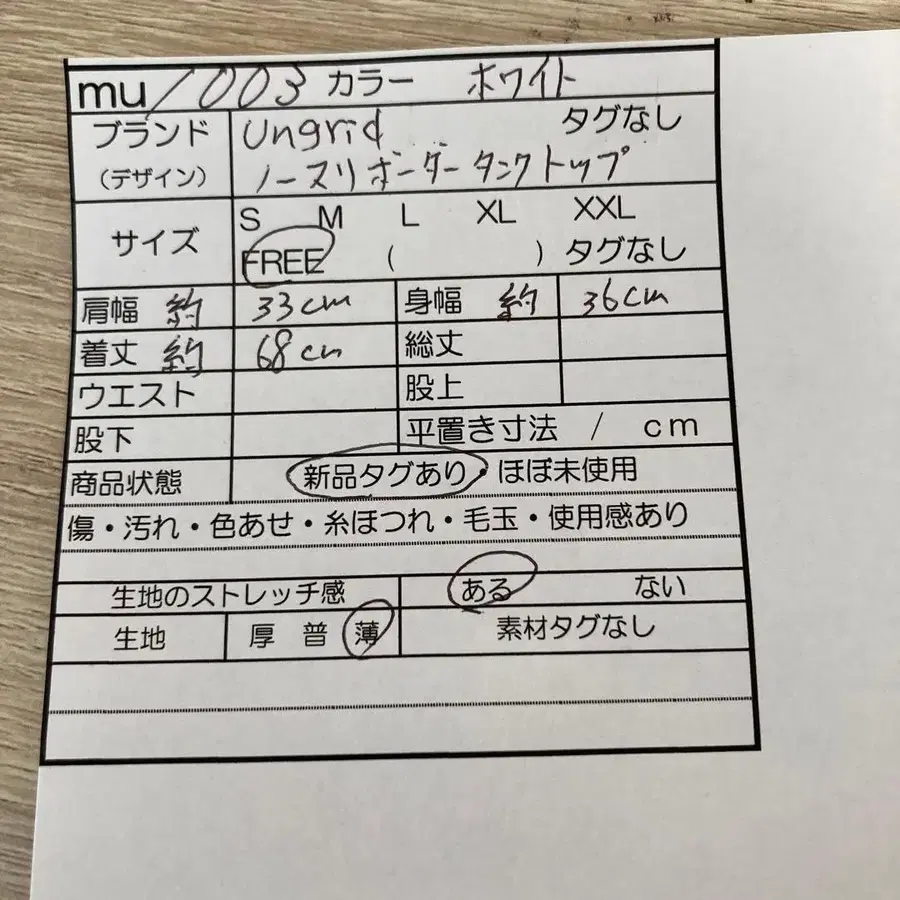 mu/003 カラー ホワイト
ブランド Ungrid タグなし
(デザイン) ノースリボーダータンクトップ
サイズ S M L XL XXL
FREE ( ) タグなし
肩幅 約 33cm 身幅 約 36cm
着丈 約 68cm 総丈
ウエスト 股上
股下 平置き寸法 / cm
商品状態 新品タグあり・ほぼ未使用
傷・汚れ・色あせ・糸ほつれ・毛玉・使用感あり
生地のストレッチ感 ある ない
生地 厚 普 薄 素材タグなし